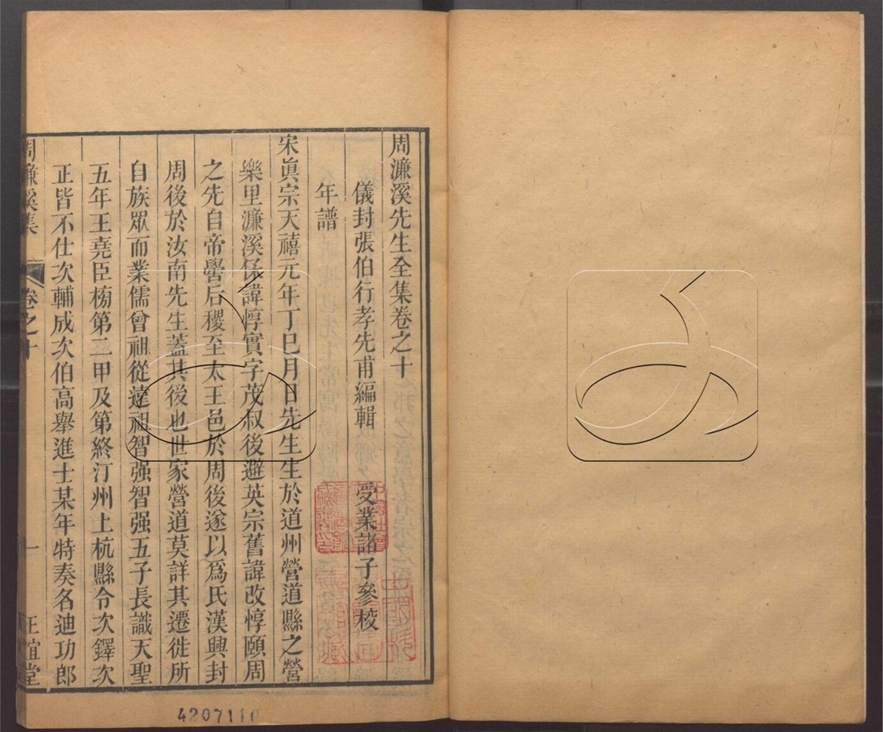 周濂溪先生全集卷之十
儀封張伯行孝先甫編輯 受業諸子參校
年譜
宋眞宗天禧元年丁巳月日先生生於道州營道縣之營
樂里濂溪保諱惇實字茂叔後避英宗舊諱改惇頤周
之先自帝嚳后稷至太王邑於周後遂以爲氏漢興封
周後於汝南先生蓋其後也世家營道莫詳其遷徙所
自族眾而業儒曾祖從遠祖智强智强五子長識天聖
五年王堯臣榜第二甲及第終汀州上杭縣令次鐸次
正皆不仕次輔成次伯高舉進士某年特奏名迪功郎
周濂溪集 卷之十 一 正誼堂
4207110